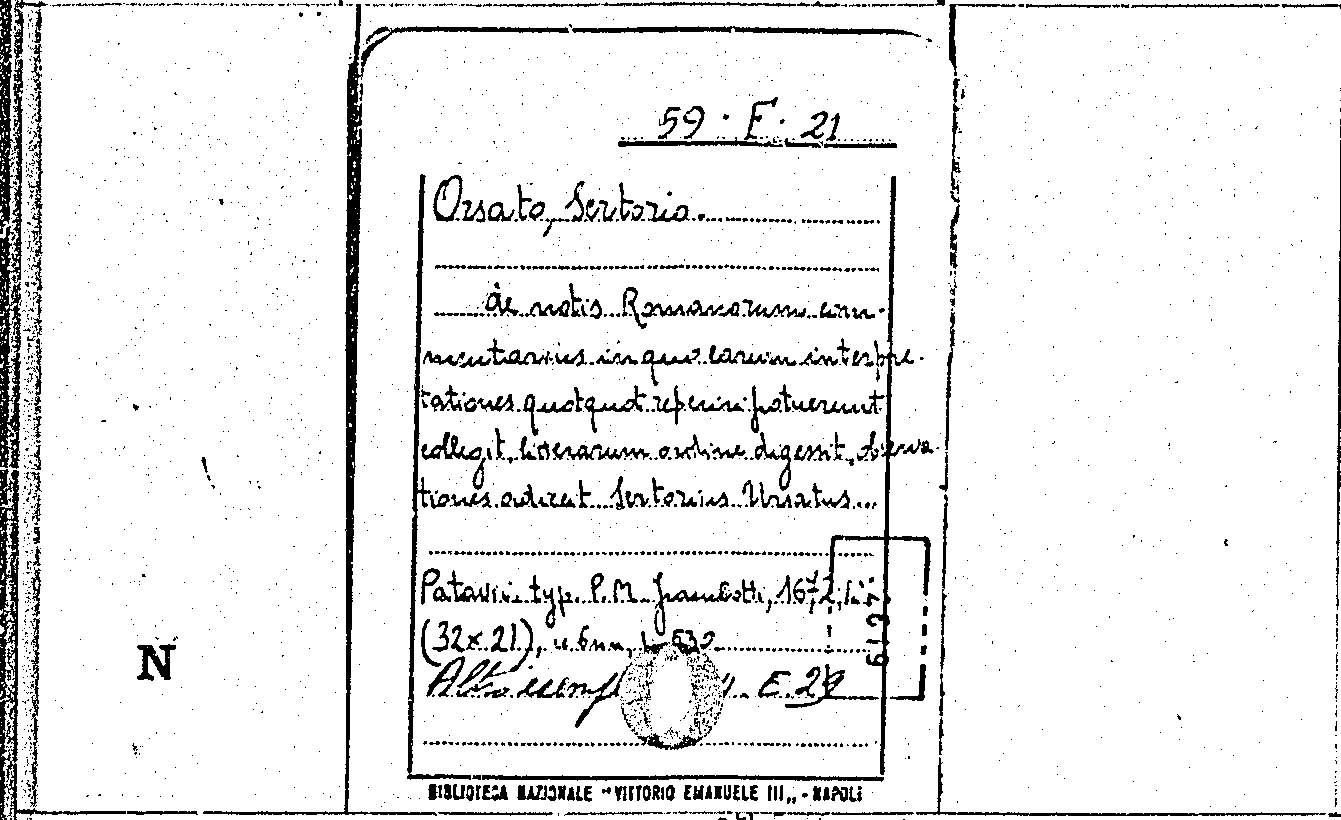 59 · F · 21
Orsato, Sertorio.
de notis Romanorum com-
mentarius in quo earum interpre-
tationes quotquot reperiri potuerunt
collegit, literarum ordine digessit, observa-
tiones adiecit Sertorius Ursatus...
Patavii typ. P. M. Frambotti, 1672, in
(32x21), 6 nn,
Altro esemp E.29
6127
N
BIBLIOTECA NAZIONALE "VITTORIO EMANUELE III„ - NAPOLI